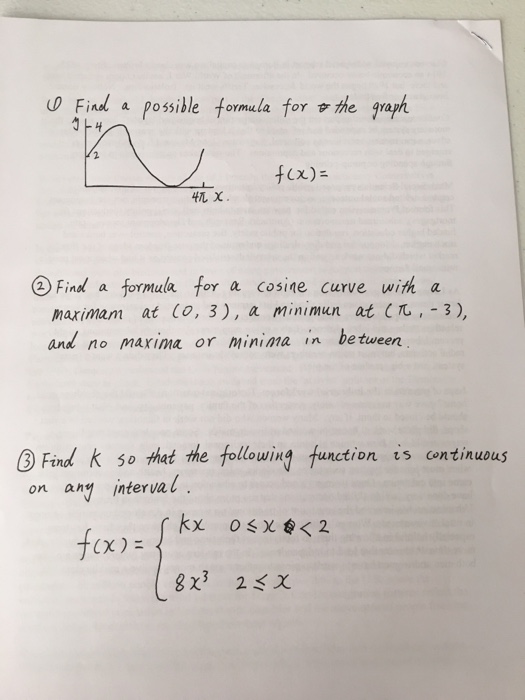 ① Find a possible formula for the graph
y 4
2
4π x.
f(x)=
② Find a formula for a cosine curve with a
maximam at (0, 3), a minimun at (π, -3),
and no maxima or minima in between.
③ Find k so that the following function is continuous
on any interval.
f(x) = { kx 0 ≤ x < 2
8x³ 2 ≤ x